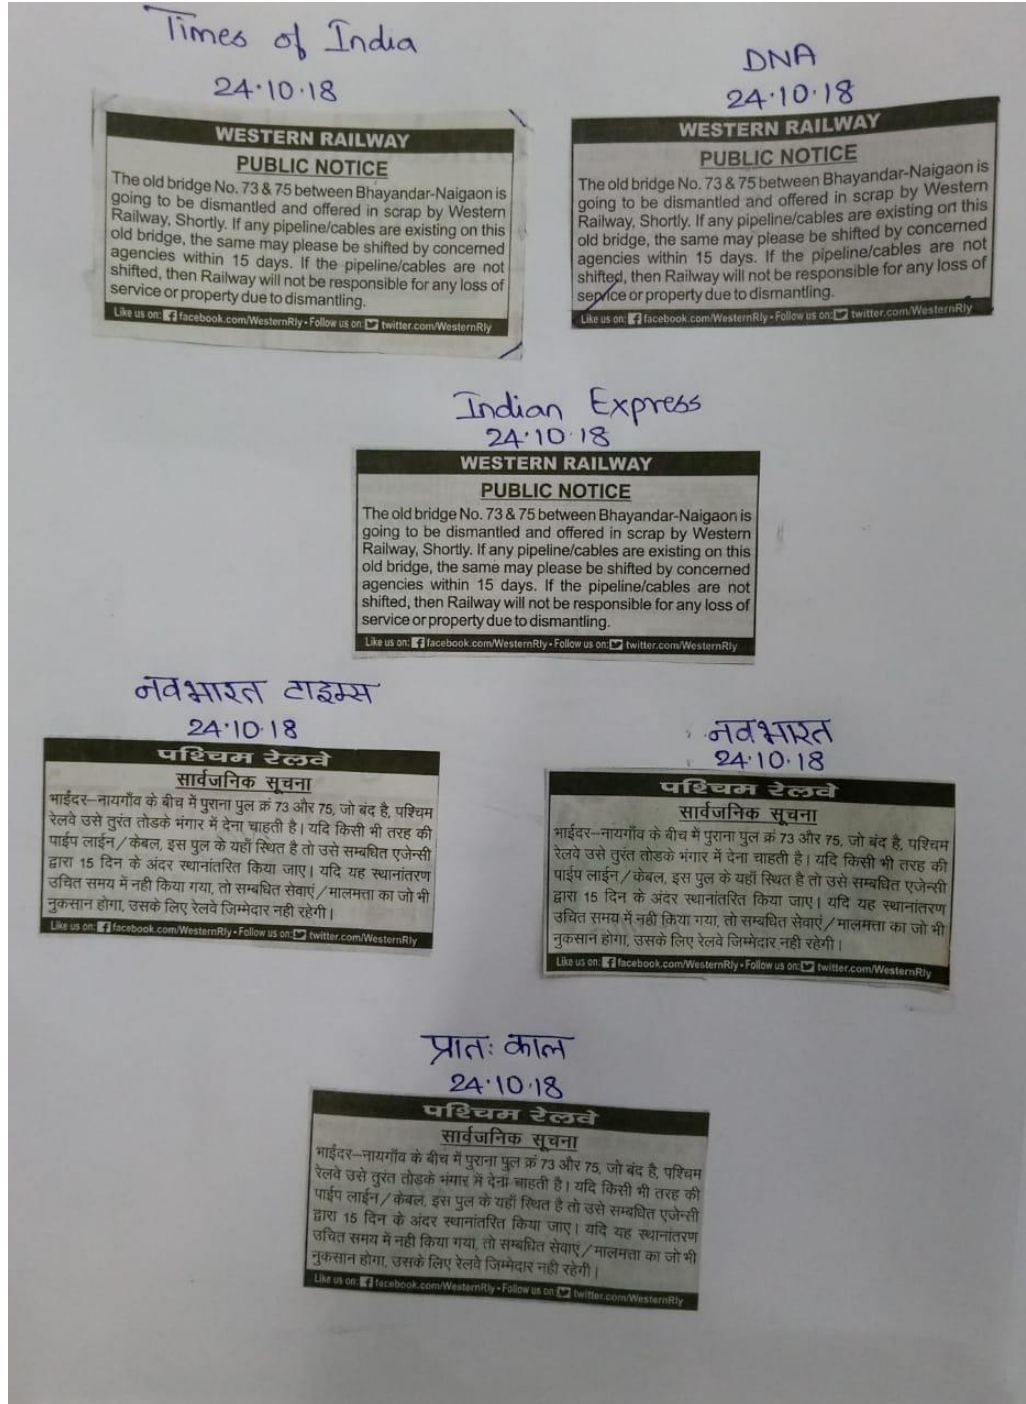 Times of India
24.10.18
WESTERN RAILWAY
PUBLIC NOTICE
The old bridge No. 73 & 75 between Bhayandar-Naigaon is
going to be dismantled and offered in scrap by Western
Railway, Shortly. If any pipeline/cables are existing on this
old bridge, the same may please be shifted by concerned
agencies within 15 days. If the pipeline/cables are not
shifted, then Railway will not be responsible for any loss of
service or property due to dismantling.
Like us on: facebook.com/WesternRly • Follow us on: twitter.com/WesternRly
DNA
24.10.18
WESTERN RAILWAY
PUBLIC NOTICE
The old bridge No. 73 & 75 between Bhayandar-Naigaon is
going to be dismantled and offered in scrap by Western
Railway, Shortly. If any pipeline/cables are existing on this
old bridge, the same may please be shifted by concerned
agencies within 15 days. If the pipeline/cables are not
shifted, then Railway will not be responsible for any loss of
service or property due to dismantling.
Like us on: facebook.com/WesternRly • Follow us on: twitter.com/WesternRly
Indian Express
24.10.18
WESTERN RAILWAY
PUBLIC NOTICE
The old bridge No. 73 & 75 between Bhayandar-Naigaon is
going to be dismantled and offered in scrap by Western
Railway, Shortly. If any pipeline/cables are existing on this
old bridge, the same may please be shifted by concerned
agencies within 15 days. If the pipeline/cables are not
shifted, then Railway will not be responsible for any loss of
service or property due to dismantling.
Like us on: facebook.com/WesternRly • Follow us on: twitter.com/WesternRly
नवभारत टाइम्स
24.10.18
पश्चिम रेलवे
सार्वजनिक सूचना
भाईंदर–नायगाँव के बीच में पुराना पुल क्रं 73 और 75, जो बंद है, पश्चिम
रेलवे उसे तुरंत तोडके भंगार में देना चाहती है। यदि किसी भी तरह की
पाईप लाईन/केबल, इस पुल के यहाँ स्थित है तो उसे सम्बधित एजेन्सी
द्वारा 15 दिन के अंदर स्थानांतरित किया जाए। यदि यह स्थानांतरण
उचित समय में नही किया गया, तो सम्बधित सेवाएं/मालमत्ता का जो भी
नुकसान होगा, उसके लिए रेलवे जिम्मेदार नही रहेगी।
Like us on: facebook.com/WesternRly • Follow us on: twitter.com/WesternRly
नवभारत
24.10.18
पश्चिम रेलवे
सार्वजनिक सूचना
भाईंदर–नायगाँव के बीच में पुराना पुल क्रं 73 और 75, जो बंद है, पश्चिम
रेलवे उसे तुरंत तोडके भंगार में देना चाहती है। यदि किसी भी तरह की
पाईप लाईन/केबल, इस पुल के यहाँ स्थित है तो उसे सम्बधित एजेन्सी
द्वारा 15 दिन के अंदर स्थानांतरित किया जाए। यदि यह स्थानांतरण
उचित समय में नही किया गया, तो सम्बधित सेवाएं/मालमत्ता का जो भी
नुकसान होगा, उसके लिए रेलवे जिम्मेदार नही रहेगी।
Like us on: facebook.com/WesternRly • Follow us on: twitter.com/WesternRly
प्रातः काल
24.10.18
पश्चिम रेलवे
सार्वजनिक सूचना
भाईंदर–नायगाँव के बीच में पुराना पुल क्रं 73 और 75, जो बंद है, पश्चिम
रेलवे उसे तुरंत तोडके भंगार में देना चाहती है। यदि किसी भी तरह की
पाईप लाईन/केबल, इस पुल के यहाँ स्थित है तो उसे सम्बधित एजेन्सी
द्वारा 15 दिन के अंदर स्थानांतरित किया जाए। यदि यह स्थानांतरण
उचित समय में नही किया गया, तो सम्बधित सेवाएं/मालमत्ता का जो भी
नुकसान होगा, उसके लिए रेलवे जिम्मेदार नही रहेगी।
Like us on: facebook.com/WesternRly • Follow us on: twitter.com/WesternRly